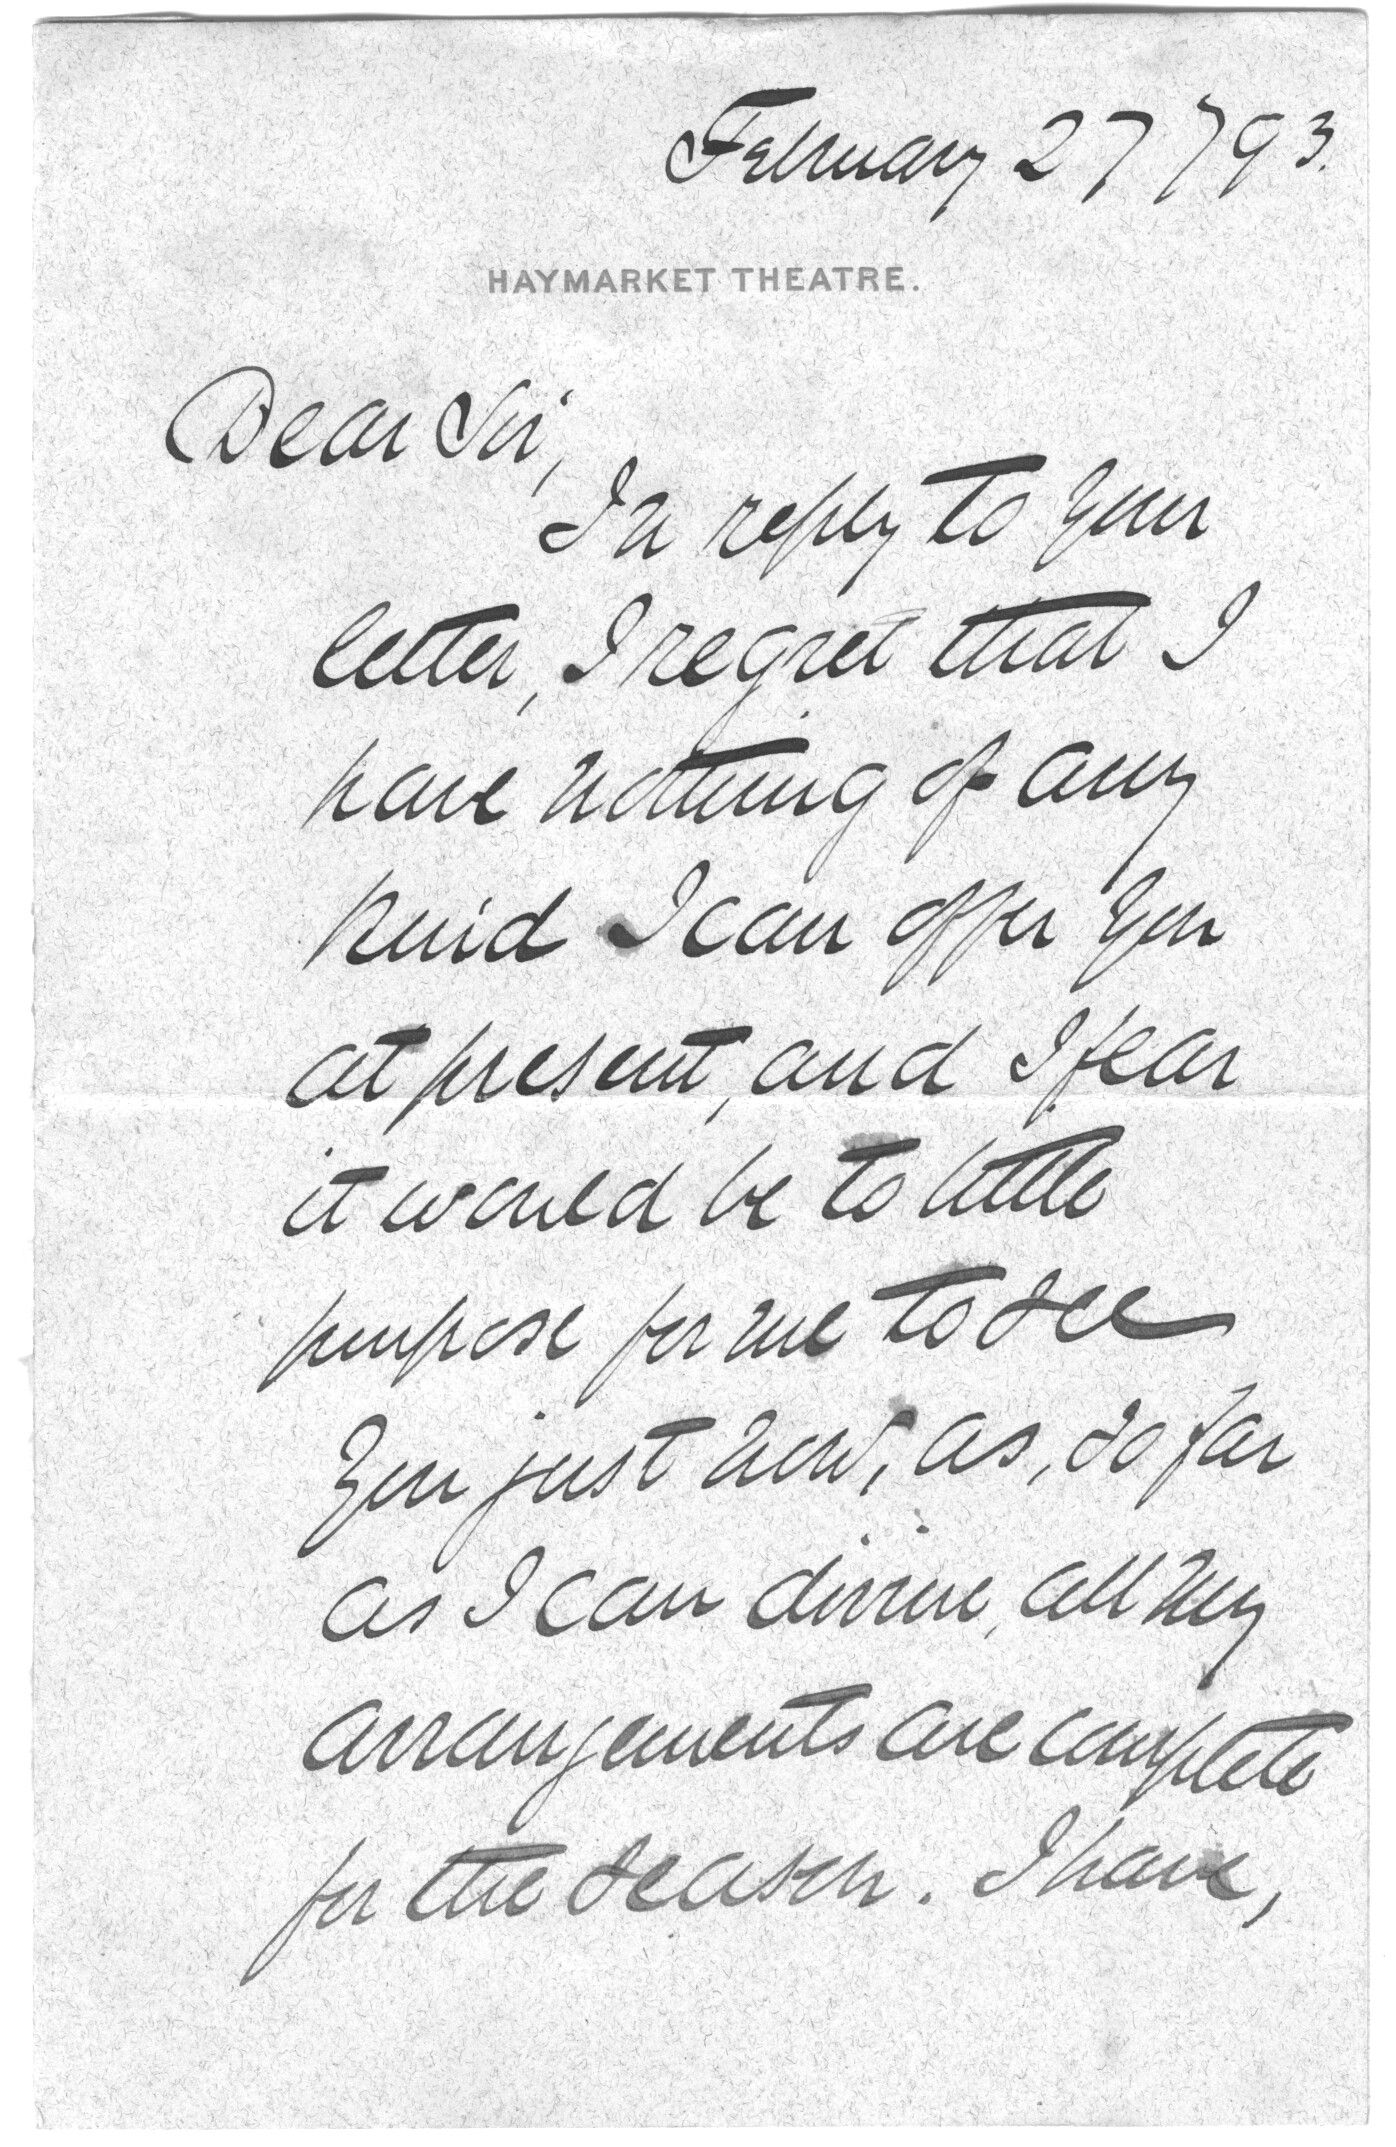 February 27/93.
HAYMARKET THEATRE.
Dear Sir,
In reply to your
letter, I regret that I
have nothing of any
kind I can offer you
at present, and I fear
it would be to little
purpose for me to see
you just now, as, so far
as I can divine, all my
arrangements are complete
for the season. I have,